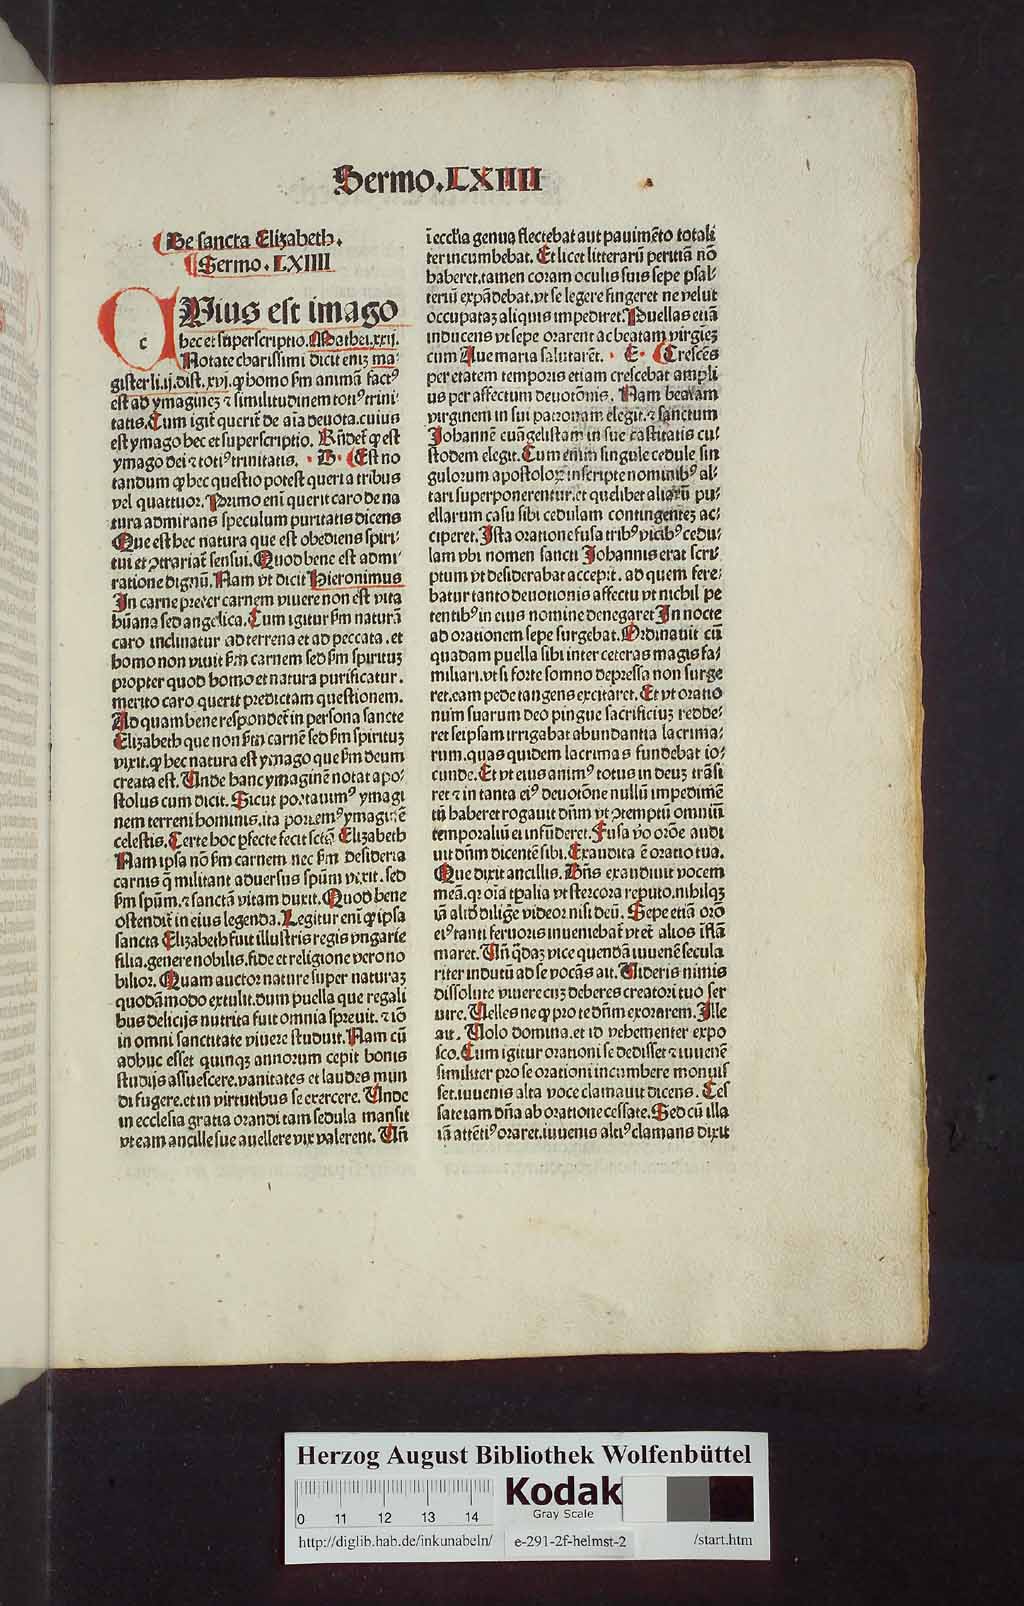 Sermo.LXIIII
De sancta Elizabeth.
Sermo.LXIIII
CVius est imago
c hec et superscriptio. Mathei.xxij.
Notate charissimi dicit eniz ma-
gister li.ij.dist.xvj. ꝙ homo fm animā factꝰ
est ad ymaginez ⁊ similitudinem totiꝰ trini
tatis. Cum igit̄ querit̄ de aīa deuota. cuius
est ymago hec et superscriptio. Rn̄det̄ ꝙ est
ymago dei ⁊ totiꝰ trinitatis. · B · Est no
tandum ꝙ hec questio potest queri a tribus
vel quattuor. Primo enī querit caro de na
tura admirans speculum puritatis dicens
Que est hec natura que est obediens spiri-
tui et ꝯtrariat̄ sensui. Quod bene est admi-
ratione dignū. Nam vt dicit Hieronimus
In carne preter carnem viuere non est vita
hūana sed angelica. Cum igitur fm naturā
caro inclinatur ad terrena et ad peccata. et
homo non viuit fm carnem sed fm spirituz
propter quod homo et natura purificatur.
merito caro querit predictam questionem.
Ad quam bene respondet̄ in persona sancte
Elizabeth que non fm carnē sed fm spirituz
vixit. ꝙ hec natura est ymago que fm deum
creata est. Unde hanc ymaginē notat apo-
stolus cum dicit. Sicut portauimꝰ ymagi
nem terreni hominis. ita portemꝰ ymaginē
celestis. Certe hoc ꝑfecte fecit sctā Elizabeth
Nam ipsa nō fm carnem nec fm desideria
carnis q̄ militant aduersus spūm vixit. sed
fm spūm. ⁊ sanctā vitam duxit. Quod bene
ostendit̄ in eius legenda. Legitur enī ꝙ ipsa
sancta Elizabeth fuit illustris regis vngarie
filia. genere nobilis. fide et religione vero no
bilior. Quam auctor nature super naturaz
quodāmodo extulit. dum puella que regali
bus delicijs nutrita fuit omnia spreuit. ⁊ iō
in omni sanctitate viuere studuit. Nam cū
adhuc esset quinqz annorum cepit bonis
studijs assuescere. vanitates et laudes mun
di fugere. et in virtutibus se exercere. Unde
in ecclesia gratia orandi tam sedula mansit
vt eam ancille sue auellere vix valerent. Un̄
ī eccl̄ia genua flectebat aut pauimēto totali
ter incumbebat. Et licet litterarū peritiā nō
haberet. tamen coram oculis suis sepe psal-
teriū expādebat. vt se legere fingeret ne velut
occupataz aliquis impediret. Puellas etiā
inducens vt sepe orarent ac beatam virginez
cum Aue maria salutarēt. · E · Crescēs
per etatem temporis etiam crescebat ampli
us per affectum deuotōnis. Nam beatam
virginem in sui patronam elegit. ⁊ sanctum
Johannē euāgelistam in sue castitatis cu-
stodem elegit. Cum enim singule cedule sin
gulorum apostoloꝝ inscripte nominibꝰ al-
tari superponerentur. et quelibet aliarū pu-
ellarum casu sibi cedulam contingentez ac-
ciperet. Ista oratione fusa tribꝰ vicibꝰ cedu-
lam vbi nomen sancti Johannis erat scri-
ptum vt desiderabat accepit. ad quem fere-
batur tanto deuotionis affectu vt nichil pe
tentibꝰ in eius nomine denegaret In nocte
ad orationem sepe surgebat. Ordinauit cū
quadam puella sibi inter ceteras magis fa-
miliari. vt si forte somno depressa non surge
ret. eam pede tangens excitaret. Et vt oratio
num suarum deo pingue sacrificiuz redde-
ret seipsam irrigabat abundantia lacrima-
rum. quas quidem lacrimas fundebat io-
cunde. Et vt eius animꝰ totus in deuz trāsi
ret ⁊ in tanta eiꝰ deuotōne nullū impedimē
tū haberet rogauit dn̄m vt ꝯtemptū omniū
temporaliū ei infūderet. Fusa v̄o orōe audi
uit dn̄m dicentē sibi. Exaudita ē oratio tua.
Que dixit ancillis. Dn̄s exaudiuit vocem
meā. qr oīa tꝑalia vt stercora reputo. nihilqz
iā aliō dilige videor nisi deū. Sepe etiā orō
eiꝰ tanti feruoris inueniebat̄ vt et̄ alios īflā
maret. Un̄ q̄daz vice quendā iuuenē secula
riter indutū ad se vocās ait. Videris nimis
dissolute viuere cuz deberes creatori tuo ser
uire. Velles ne ꝙ pro te dn̄m exorarem. Ille
ait. Volo domina. et id vehementer expo
sco. Cum igitur orationi se dedisset ⁊ iuuenē
similiter pro se orationi incumbere monuis
set. iuuenis alta voce clamauit dicens. Ces
sate iam dn̄a ab oratione cessate. Sed cū illa
iā attētiꝰ oraret. iuuenis altiꝰ clamans dixit
Herzog August Bibliothek Wolfenbüttel
0 11 12 13 14
Kodak
Gray Scale
http://diglib.hab.de/inkunabeln/ e-291-2f-helmst-2 /start.htm